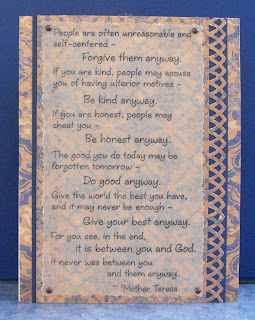 People are often unreasonable and
self-centered -
Forgive them anyway.
If you are kind, people may accuse
you of having ulterior motives -
Be kind anyway.
If you are honest, people may
cheat you -
Be honest anyway.
The good you do today may be
forgotten tomorrow -
Do good anyway.
Give the world the best you have,
and it may never be enough -
Give your best anyway.
For you see, in the end,
it is between you and God.
It never was between you
and them anyway.
~ Mother Teresa